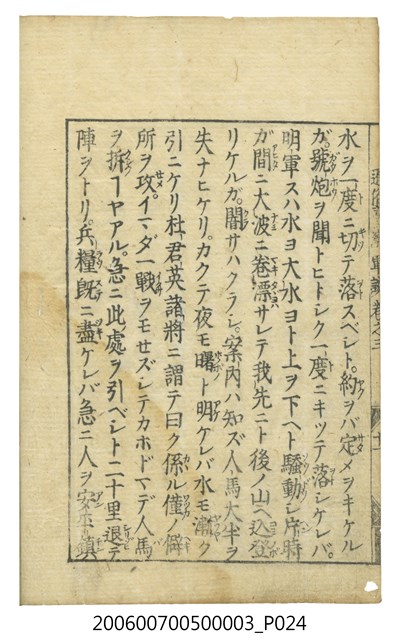 水ヲ一度ニ切テ落スベシト。約ヲバ定メヲキケル
ガ。號炮ヲ聞トヒトシク一度ニキツテ落シケレバ。
明軍スハ水ヨ大水ヨト上ヲ下ヘト騷動シ。片時
ガ間ニ大波ニ卷漂サレテ我先ニト後ノ山ヘ込登
リケルガ。闇サハクラシ。案内ハ知ズ人馬大半ヲ
失ナヒケリ。カクテ夜モ曙ト明ケレバ水モ漸ク
引ニケリ杜君英諸將ニ謂テ曰ク係ル僅ノ僻
所ヲ攻。イマダ一戰ヲモセズシテカホドマデ人馬
ヲ拆ヿヤアル。急ニ此處ヲ引ベシト二十里退テ
陣ヲトリ。兵糧既ニ盡ケレバ急ニ人ヲ安平鎮
卷之三
十一
200600700500003_P024